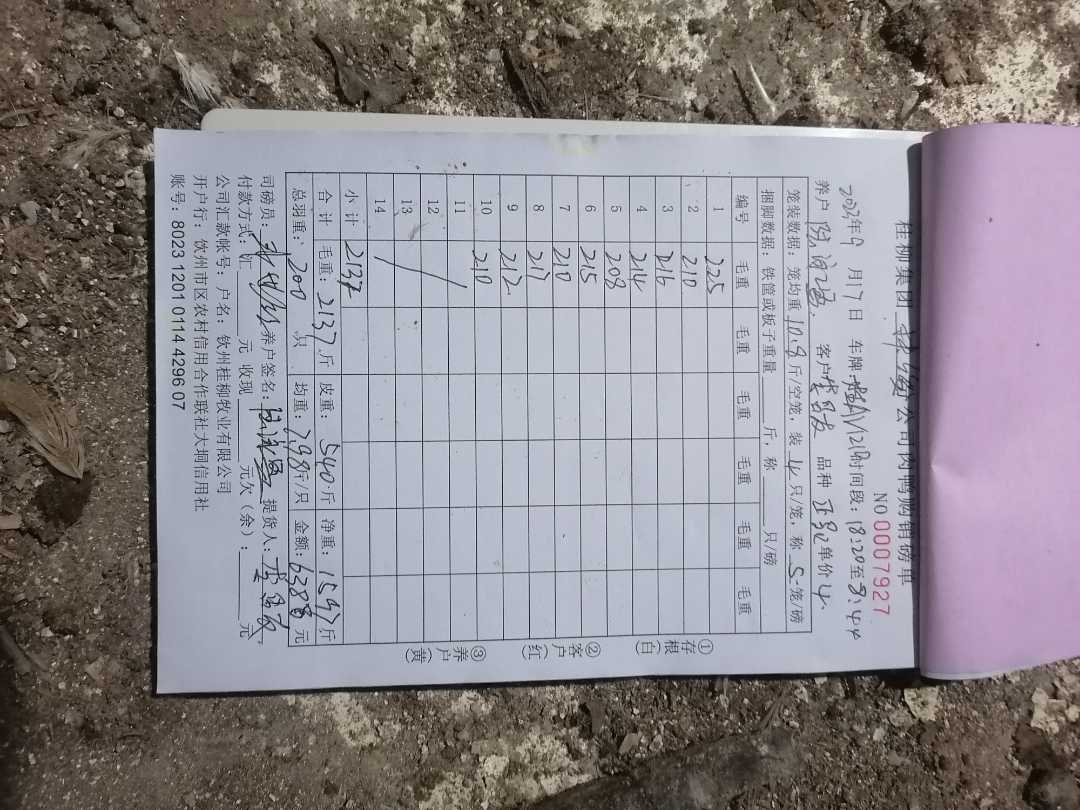 桂柳集团 公司肉鸭购销磅单
NO 0007927
2023年9月17日 车牌: 时间段:18:20至8:44
养户 客户 李昌友 品种 单价 4.
笼装数据:笼均重10.8斤/空笼,装4只/笼,称5笼/磅
捆脚数据:铁管或板子重量 斤,称 只/磅
编号 毛重 毛重 毛重 毛重 毛重 毛重
1 225
2 210
3 216
4 214
5 208
6 215
7 210
8 217
9 212
10 210
11
12
13
14
小计 2137
合计 毛重:2137斤 皮重:540斤 净重:1597斤
总羽重:200只 均重:7.98斤/只 金额:6388元
司磅员: 养户签名: 提货人:李昌友
付款方式:汇 元 收现 元欠(余): 元
公司汇款帐号:户名:钦州桂柳牧业有限公司
开户行:钦州市区农村信用合作联社大垌信用社
账号:8023 1201 0114 4296 07
①存根(白)
②客户(红)
③养户(黄)